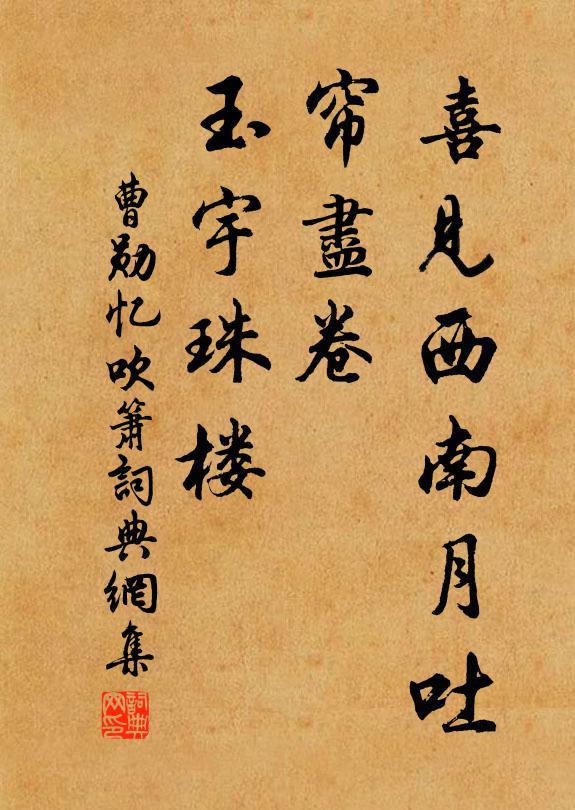 喜見西南月吐
帘盡卷
玉宇珠楼
曹勋忆吹箫詞典網集
詞典
网印